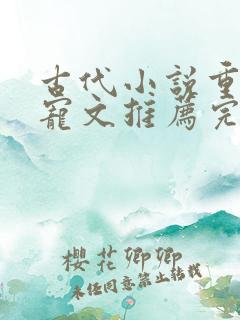 古代小说重
宠文推荐完
樱花卿卿
未经同意禁止转载